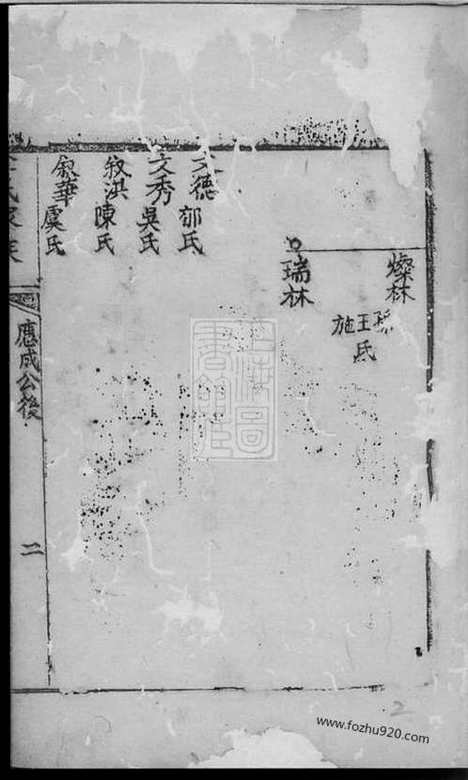 燦林
孫
王氏
施
瑞林
文德
郁氏
文秀
吳氏
敘洪
陳氏
敘華
虞氏
應成公後
二
2
www.fozhu920.com